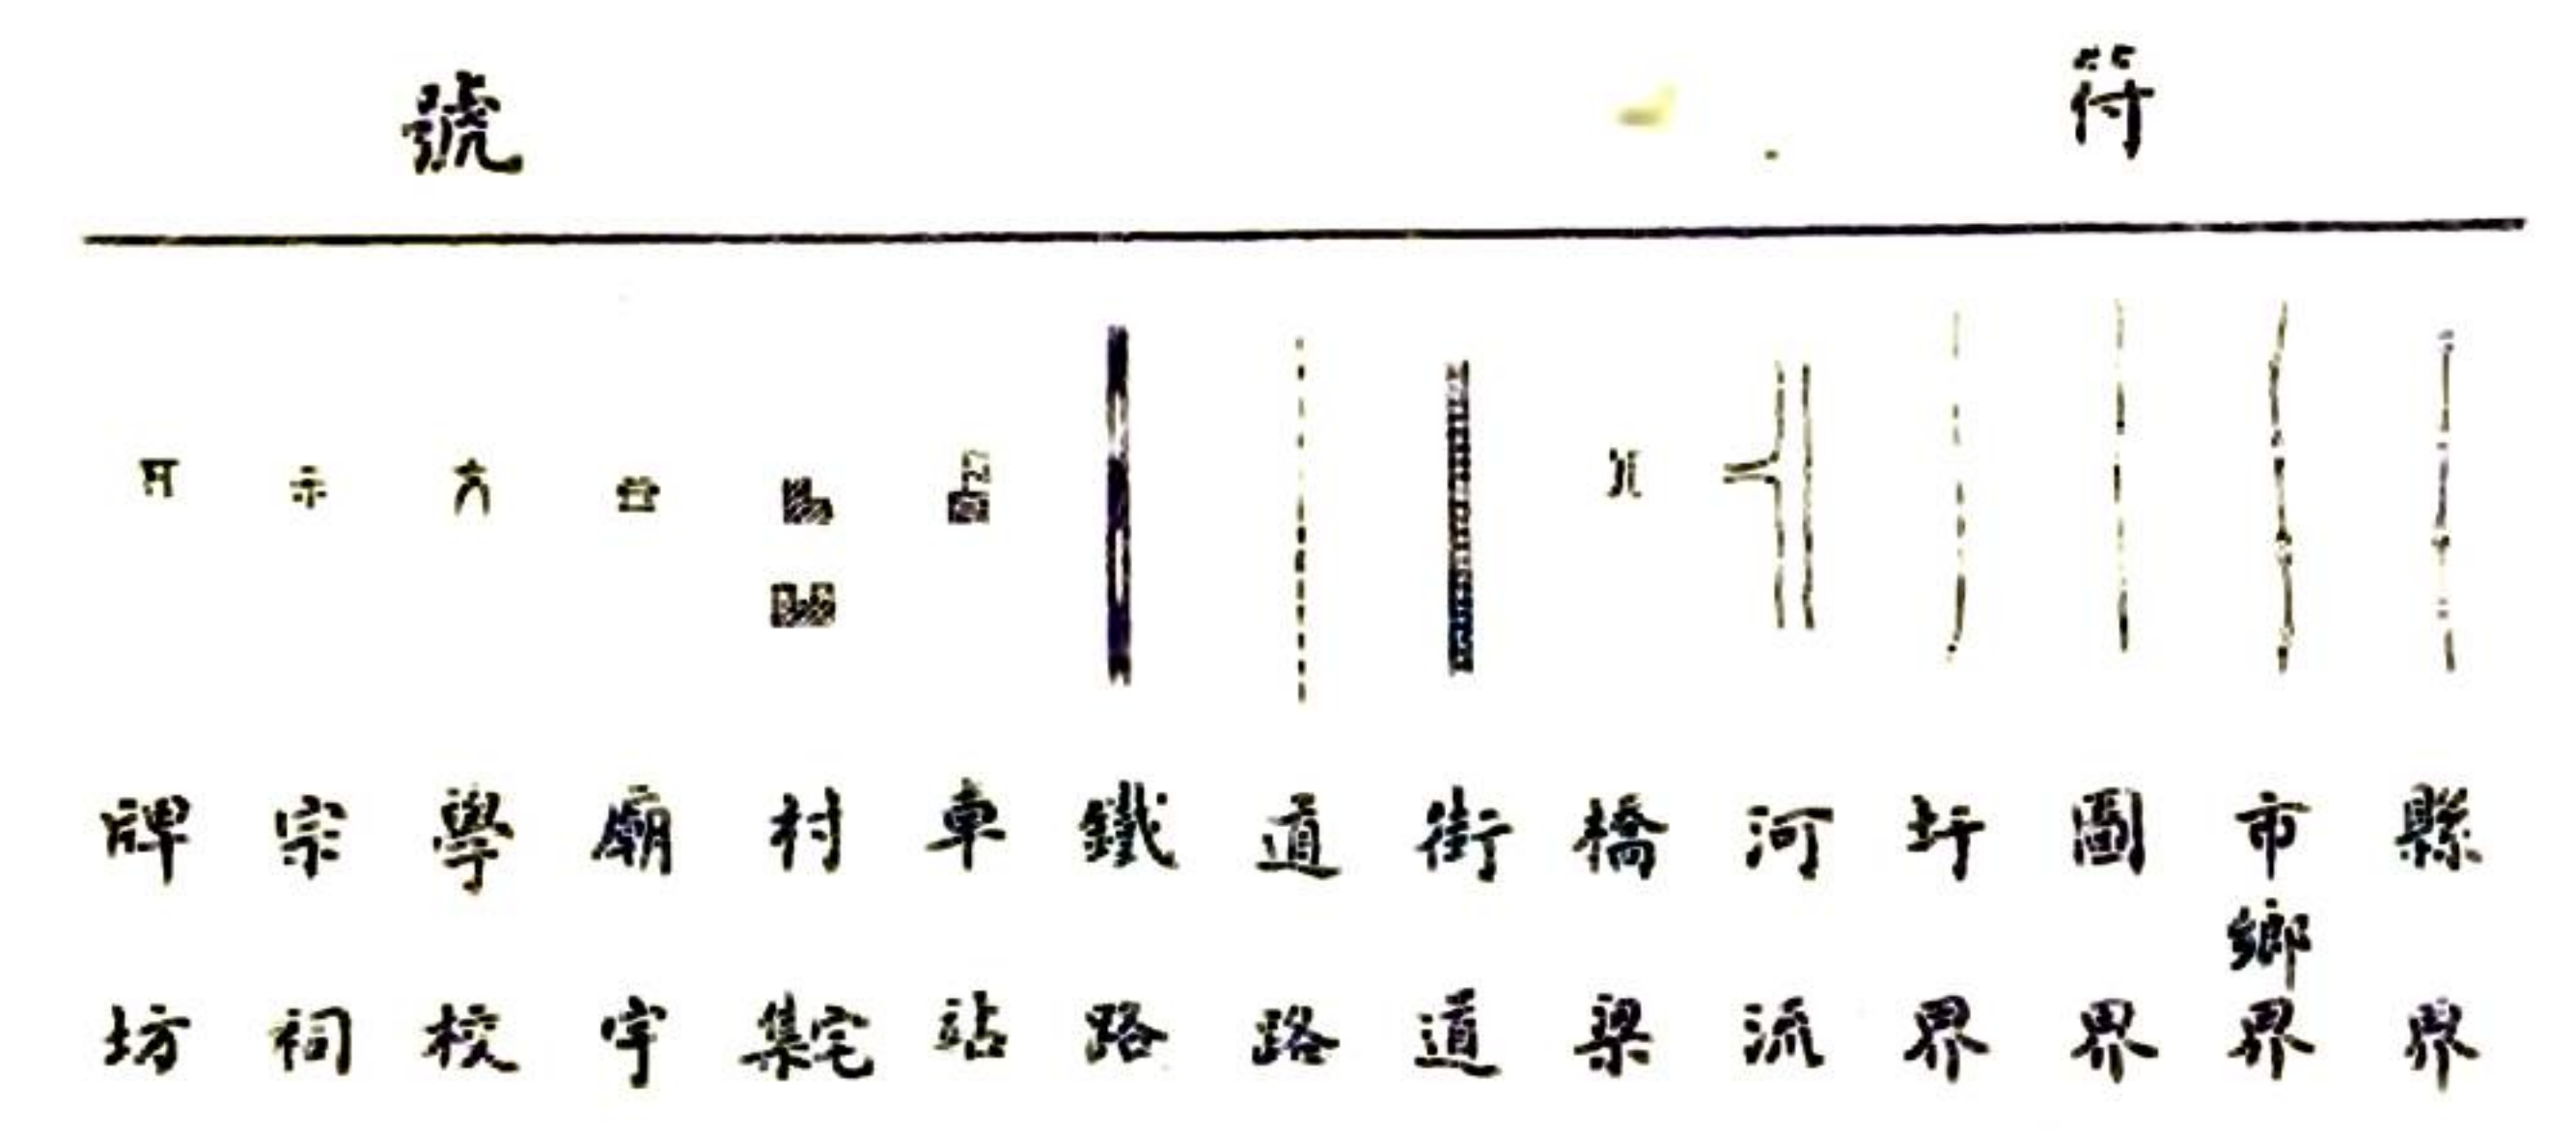 符號
縣界
市鄉界
圖界
圩界
河流
橋梁
街道
道路
鐵路
車站
村宅集
廟宇
學校
宗祠
牌坊